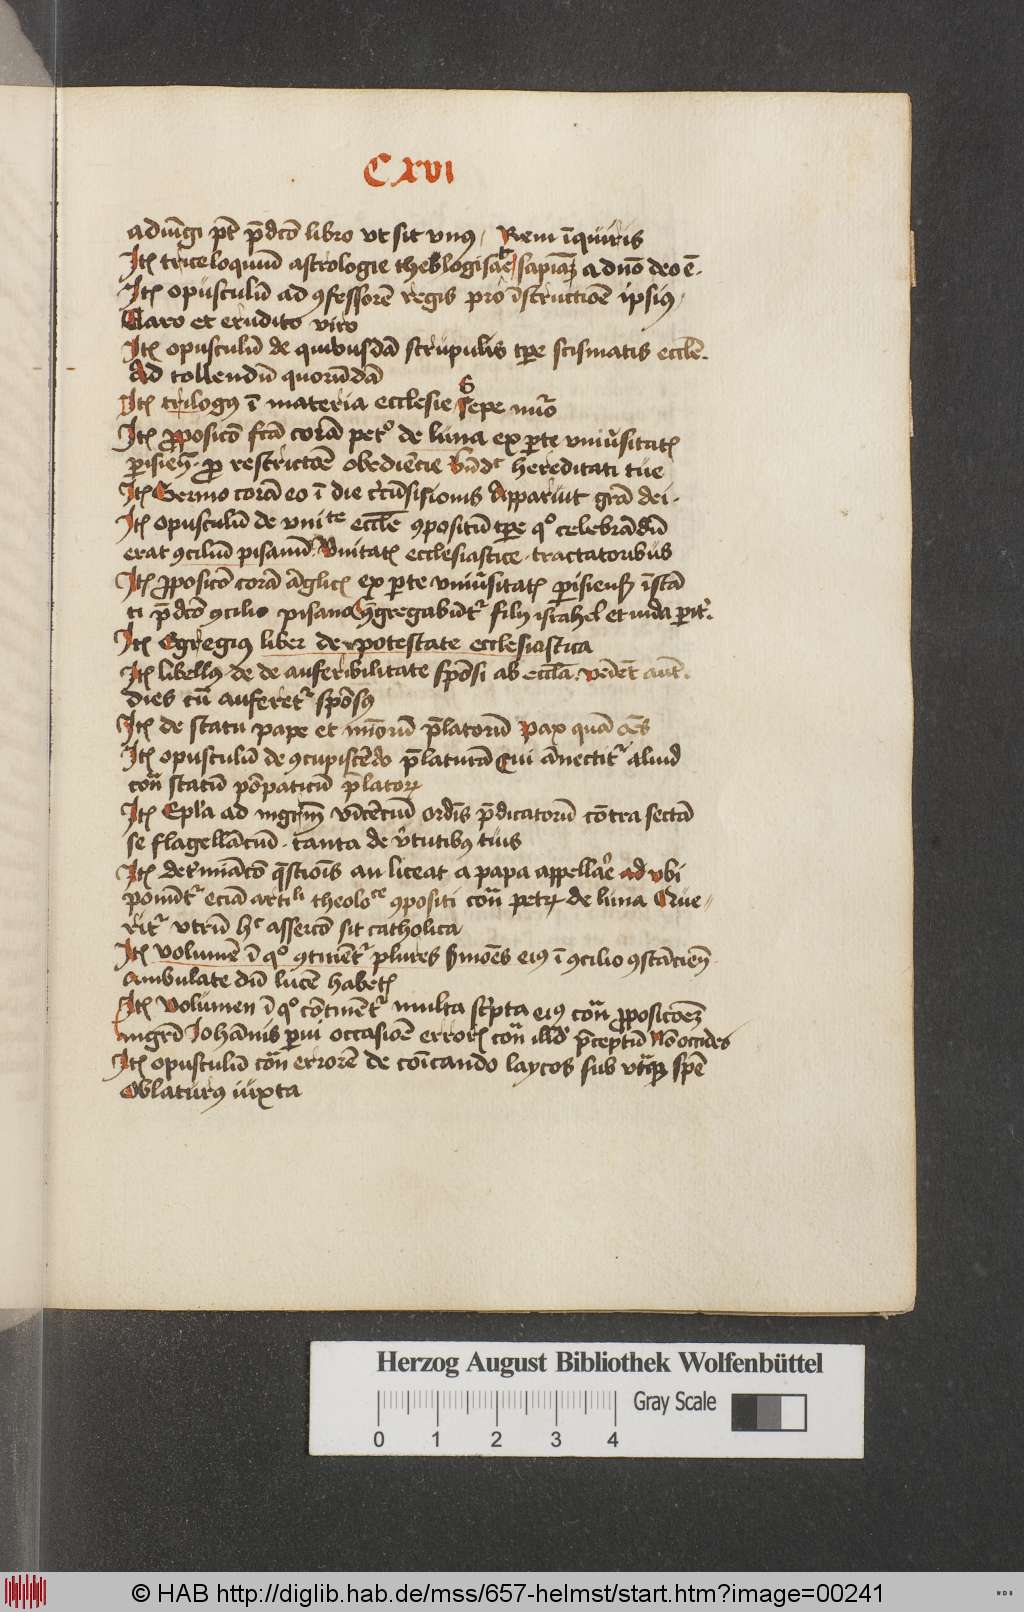 C xvi
adiu̅gi pt̅ p̅dc̅o libro vt sit vnꝰ Rem i̅quiris
Jtē triceloquiu̅ astrologie theologisate sapia̅ aduo̅ deo e̅
Jtē opusculu̅ ad ꝯfessore̅ regis pro i̅structio̅e ipsiꝰ
Claro et erudito viro
Jtē opusculu̅ de quibusda̅ scrupulis tp̅e scismatis eccle̅.
Ad tollendu̅ quoru̅da̅
Jtē trilogꝰ i̅ materia ecclesie Sepe nu̅o
Jtē ꝓposico̅ fc̅a cora̅ petº de luna ex ꝑte vniu̅sitatē
ꝑisien̅ ꝓ restrictio̅e obedie̅cie Bn̅dc hereditati tue
Jtē Sermo cora̅ eo i̅ die cr̅cu̅sisionis Apparuit gra̅ dei
Jtē opusculu̅ de vnite eccle̅ ꝯpositu̅ tp̅e qº celebra̅du̅
erat ꝯciliu̅ pisanu̅ Vnitatē ecclesiastice tractatoribus
Jtē ꝓposico̅ cora̅ a̅glicē ex ꝑte vniu̅sitatē ꝑisien̅ i̅sta̅
ti p̅dc̅o ꝯcilio pisano Ꝯgregabu̅t᷑ filij israhel et iuda ꝑit᷑
Jtē Egregius liber de potestate ecclesiastica
Jtē libellꝰ de de auferibilitate spo̅si ab eccl̅a. ve̅ie̅t aut̅.
dies cu̅ auferet᷑ spo̅sꝰ
Jtē de statu pape et mi̅oru̅ p̅latoru̅ Pax qua̅ o̅e̅s
Jtē opusculu̅ de ꝯcupisce̅do p̅latura̅ Cui a̅nectit᷑ aliud
con̅ statu̅ po̅paticu̅ p̅latoꝝ
Jtē Epl̅a ad mgrm̅ vi̅ce̅ciu̅ ordi̅s p̅dicatoru̅ co̅tra secta̅
se flagella̅ciu̅ . tanta de v̅tutibꝰ tuis
Jtē det᷑mi̅aco̅ q̅stio̅is an liceat a papa appellar̅e ad vbi
ponu̅t᷑ ecia̅ artili theoloce ꝯpositi con̅ petꝝ de luna Que
rit᷑ vtru̅ hc asserco̅ sit catholica
Jtē volume̅ i̅ qº ꝯtine̅t᷑ plures s̅mo̅es eiꝰ i̅ ꝯcilio ꝯsta̅cien̅
Ambulate du̅ luce̅ habetē
Jtē Volumen i̅ qº co̅tine̅t᷑ multa sc̅pta eiꝰ con̅ ꝓposico̅em
mgrī Joha̅nis ꝑui occasio̅e errorē con̅ illd̅ p̅ceptu̅ No̅ occides
Jtē opusculu̅ con̅ errore̅ de co̅i̅cando laycos sub vt̅qꝫ spe̅
Oblaturꝰ iuxta
Herzog August Bibliothek Wolfenbüttel
Gray Scale
0 1 2 3 4
© HAB http://diglib.hab.de/mss/657-helmst/start.htm?image=00241